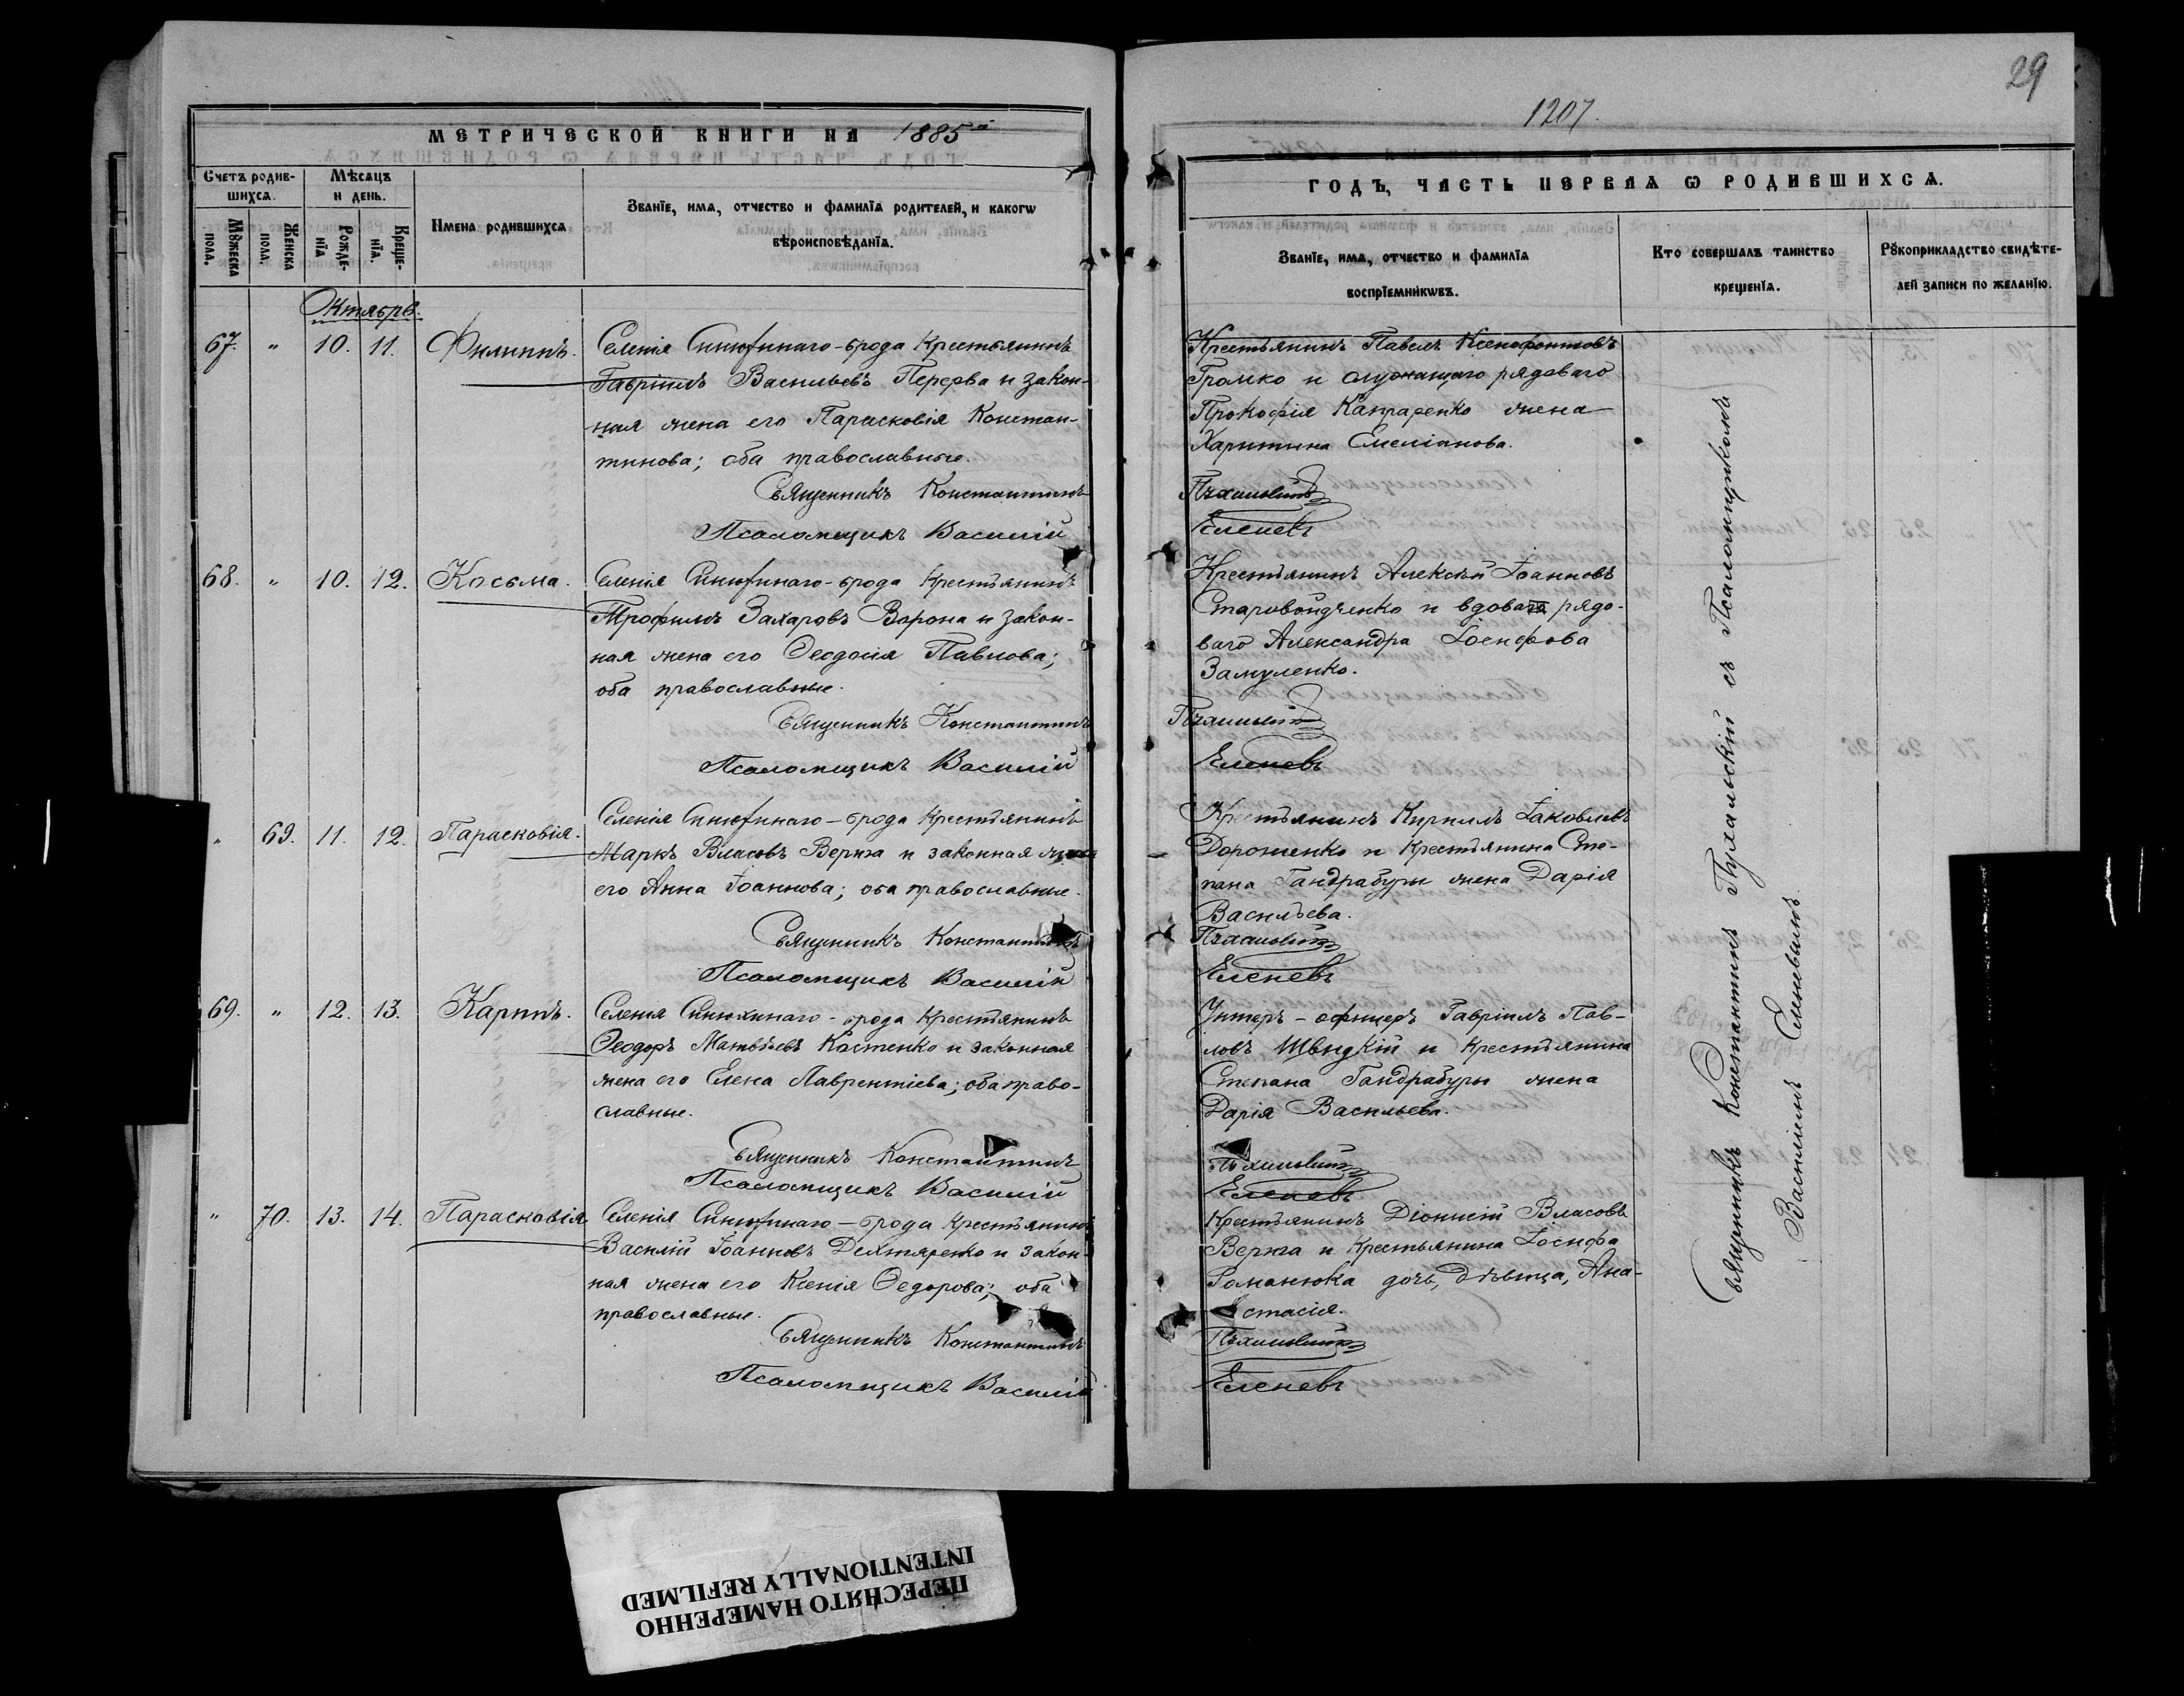 29
1207.
МЕТРИЧЕСКОЙ КНИГИ НА 1885й
ГОДЪ, ЧАСТЬ ПЕРВАЯ Ѡ РОДИВШИХСѦ.
Счетъ родив-
шихсѧ.
Мѣсѧцъ
и день.
Мꙋжеска
пола.
Женска
пола.
Рожде-
нїѧ
Креще-
нїѧ.
Имена родившихсѧ
Званїе, имѧ, отчество и фамилїѧ родителей, и какогѡ
вѣроисповѣданїѧ.
Званїе, имѧ, отчество и фамилїѧ
воспрїемникѡвъ.
Кто совершалъ таинство
крещенїѧ.
Рꙋкоприкладство свидѣте-
лей записи по желанїю.
Октябрь.
67. " 10. 11. Филиппъ.
Селенія Синюхинаго-брода крестьянинъ
Гавріилъ Васильевъ Перерва и закон-
ная жена его Парасковія Констан-
тинова; оба православные.
Священникъ Константинъ
Псаломщикъ Василій
Крестьянинъ Павелъ Ксенофонтовъ
Громко и служащаго рядоваго
Прокофія Капраренко жена
Харитина Емеліанова.
Еленевъ
68. " 10. 12. Косьма.
Селенія Синюхинаго-брода крестьянинъ
Трофимъ Захаровъ Ворона и закон-
ная жена его Ѳеодосія Павлова;
оба православные.
Священникъ Константинъ
Псаломщикъ Василій
Крестьянинъ Алексѣй Іоанновъ
Старовойдченко и вдова рядо-
ваго Александра Іосифова
Замуленко.
Еленевъ
" 69. 11. 12. Парасковія.
Селенія Синюхинаго-брода крестьянинъ
Маркъ Власовъ Верига и законная жена
его Анна Іоаннова; оба православные.
Священникъ Константинъ
Псаломщикъ Василій
Крестьянинъ Кириллъ Іаковлевъ
Дорошенко и крестьянина Сте-
пана Гандрабуры жена Дарія
Васильева.
Еленевъ
69. " 12. 13. Карпъ.
Селенія Синюхинаго-брода крестьянинъ
Ѳеодоръ Матвѣевъ Костенко и законная
жена его Елена Лаврентіева; оба право-
славные.
Священникъ Константинъ
Псаломщикъ Василій
Унтеръ-офицеръ Гавріилъ Пав-
ловъ Швидкій и крестьянина
Степана Гандрабуры жена
Дарія Васильева.
Еленевъ
" 70. 13. 14. Парасковія.
Селенія Синюхинаго-брода крестьянинъ
Василій Іоанновъ Дехтяренко и закон-
ная жена его Ксенія Ѳедорова; оба
православные.
Священникъ Константинъ
Псаломщикъ Василій
Крестьянинъ Діонисій Власовъ
Верига и крестьянина Іосифа
Романюка дочь, дѣвица, Ана-
стасія.
Еленевъ
Священникъ Константинъ Пухальскій съ Псаломщикомъ
Василіемъ Еленевымъ.
ПЕРЕСНЯТО НАМЕРЕННО
INTENTIONALLY REFILMED